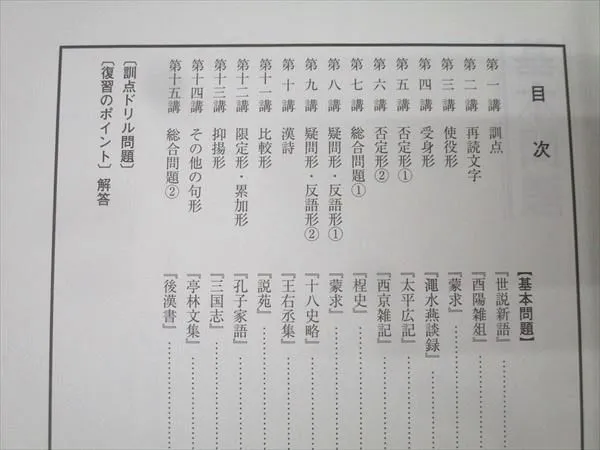 目次
【基本問題】
第一講 訓点 『世説新語』
第二講 再読文字 『酉陽雑俎』
第三講 使役形 『蒙求』
第四講 受身形 『澠水燕談録』
第五講 否定形① 『太平広記』
第六講 否定形② 『西京雑記』
第七講 総合問題① 『桯史』
第八講 疑問形・反語形① 『蒙求』
第九講 疑問形・反語形② 『十八史略』
第十講 漢詩 『王右丞集』
第十一講 比較形 『説苑』
第十二講 限定形・累加形 『孔子家語』
第十三講 抑揚形 『三国志』
第十四講 その他の句形 『亭林文集』
第十五講 総合問題② 『後漢書』
〔訓点ドリル問題〕
〔復習のポイント〕解答